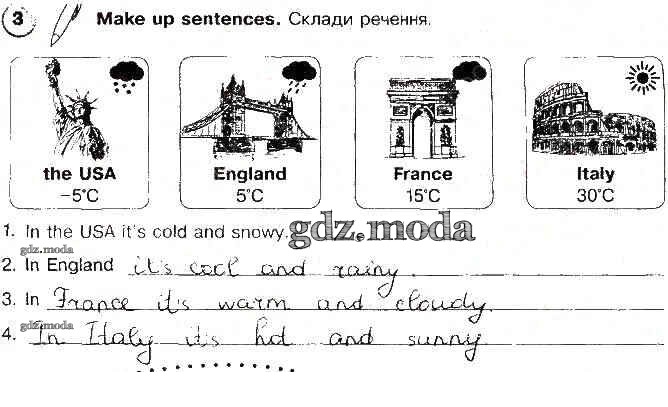 3 Make up sentences. Склади речення.
the USA England France Italy
-5°C 5°C 15°C 30°C
1. In the USA it's cold and snowy.
gdz.moda
gdz.moda
2. In England it's cool and rainy.
3. In France it's warm and cloudy.
gdz.moda
4. In Italy it's hot and sunny